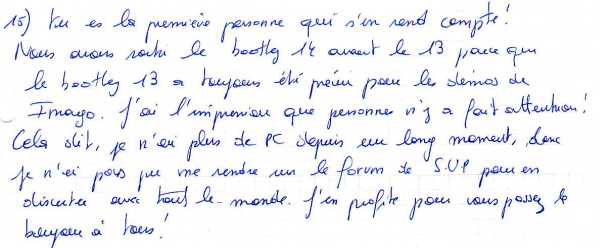 15) Tu es la première personne qui s'en rend compte!
Nous avons sorti le bootleg 14 avant le 13 parce que
le bootleg 13 a toujours été prévu pour les démos de
Imago. J'ai l'impression que personne n'y a fait attention!
Cela dit, je n'ai plus de PC depuis un long moment, donc
je n'ai pas pu me rendre sur le forum de S.UP pour en
discuter avec tout le monde. J'en profite pour vous passez le
bonjour à tous!